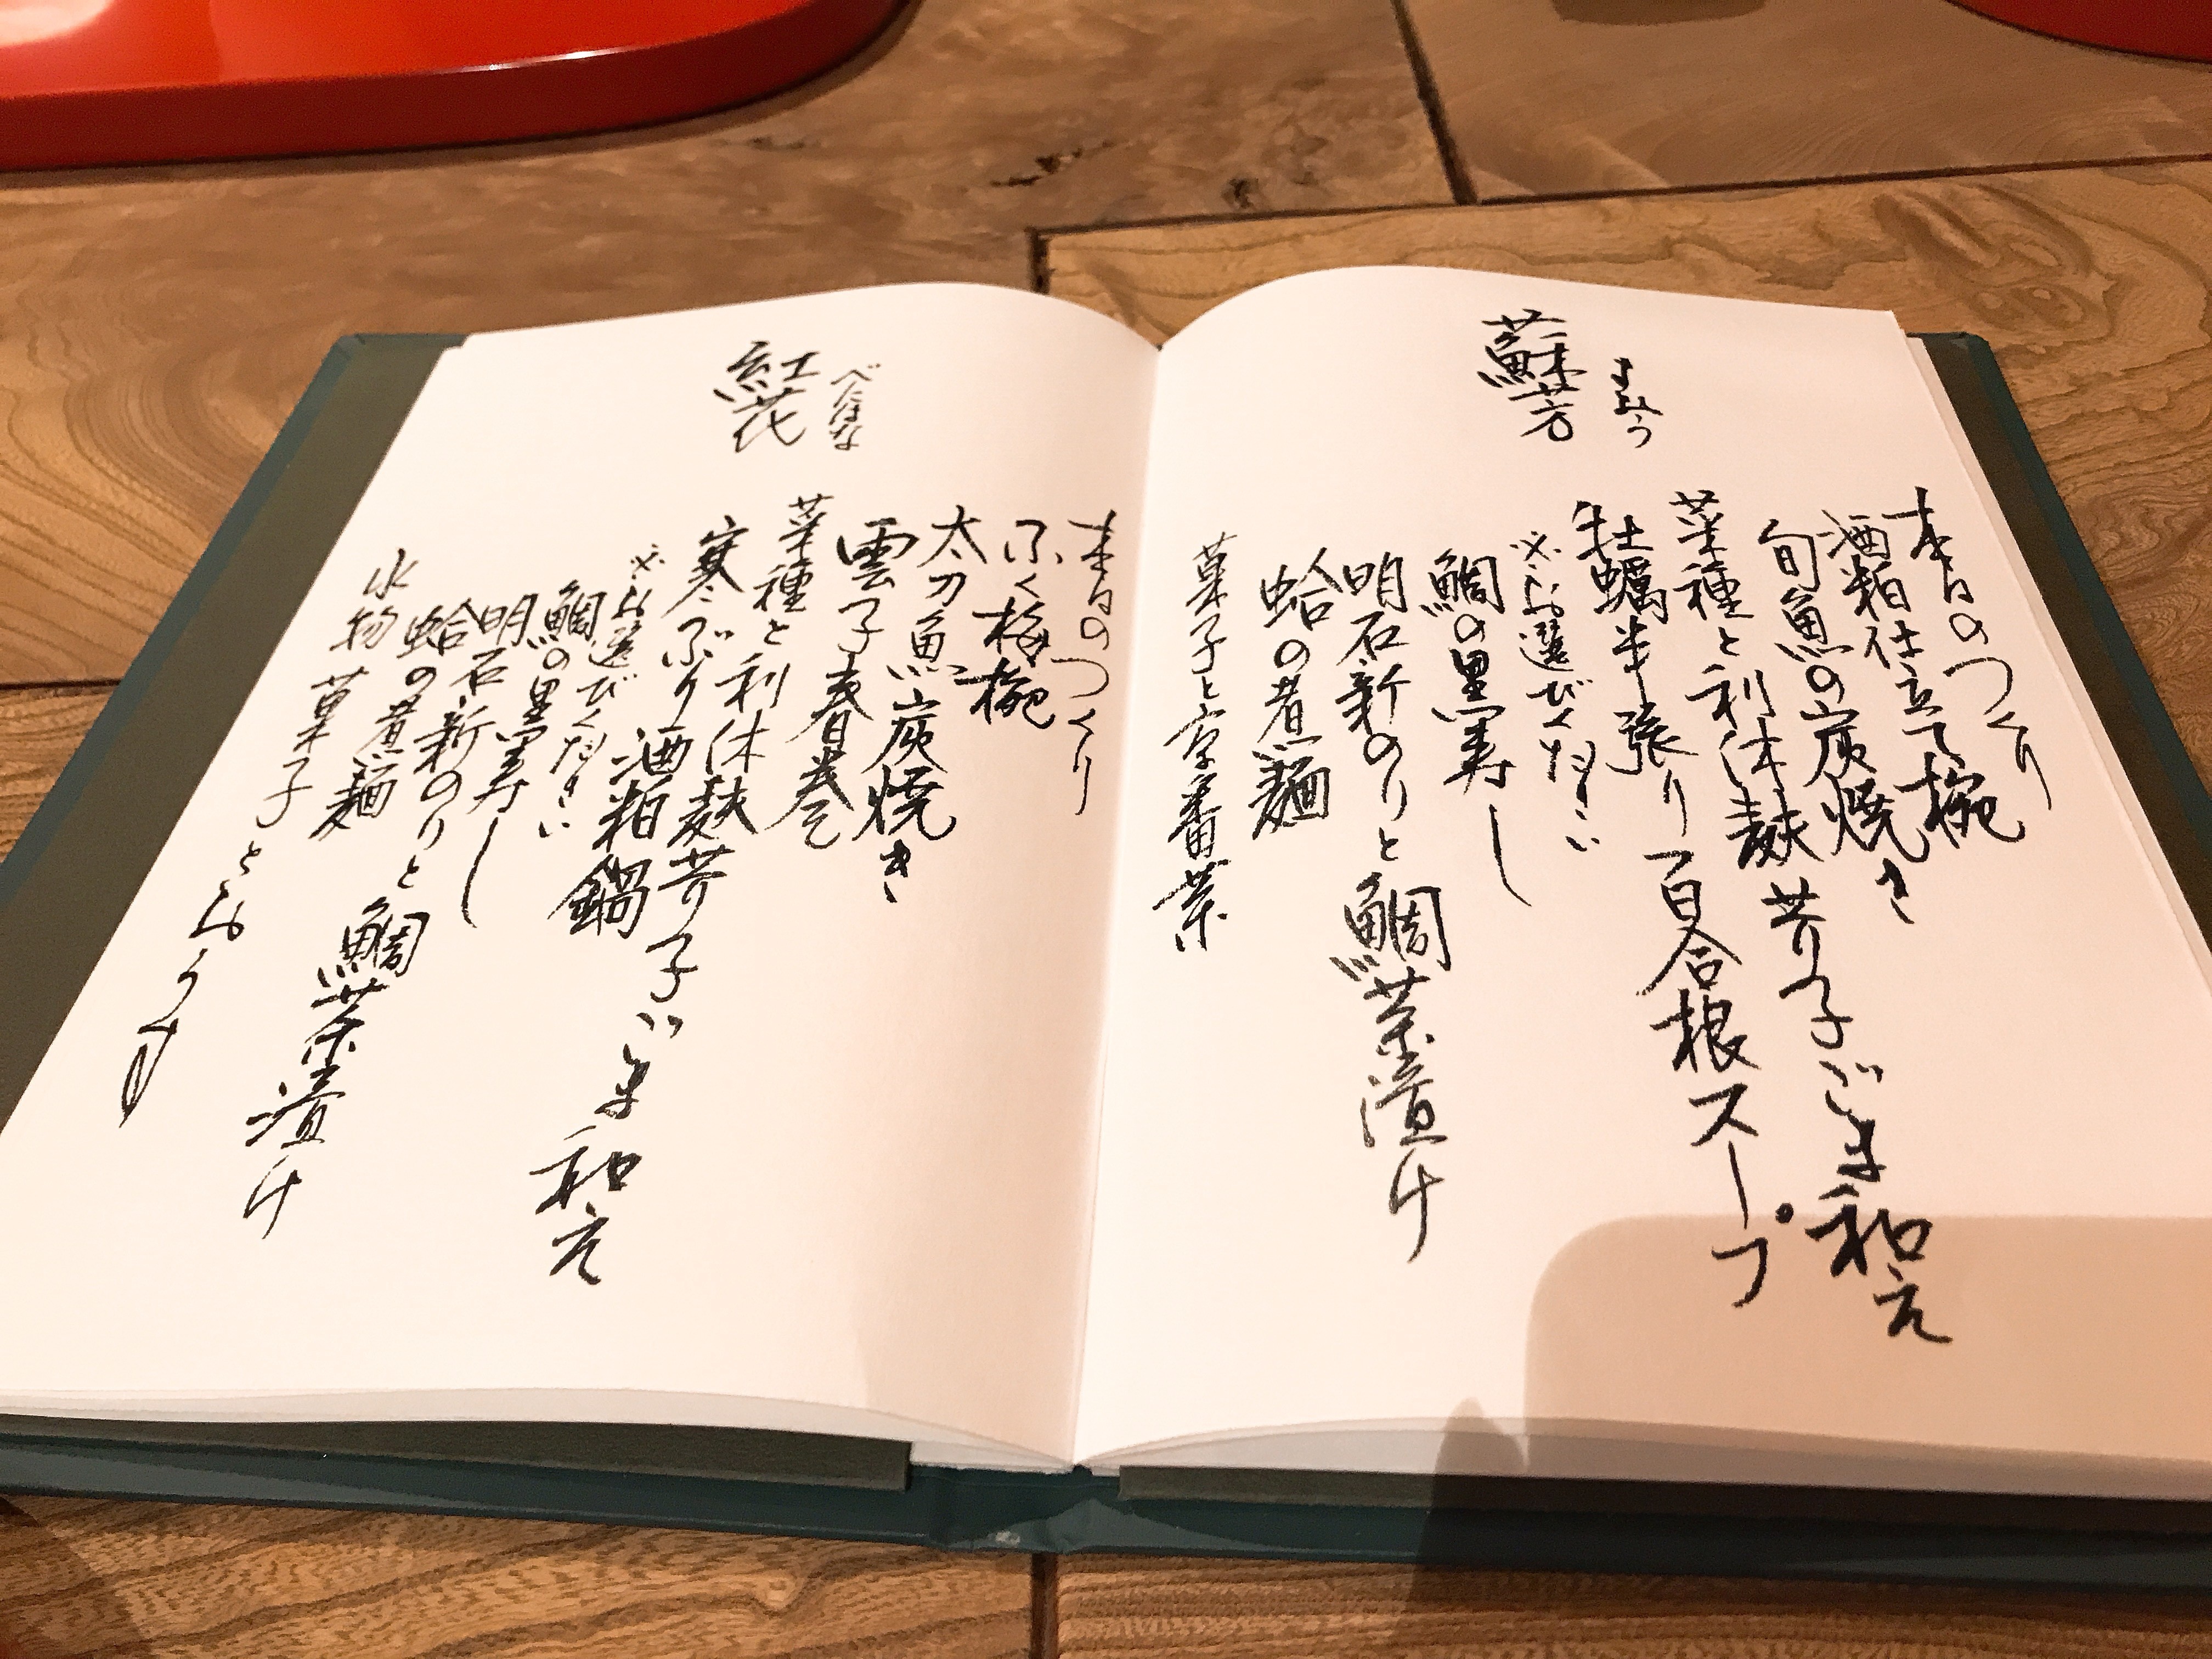 蘇芳
すおう
本日のつくり
酒粕仕立て椀
旬魚の炭焼き
菜種と利休麸芥子ごま和え
牡蠣半張り百合根スープ
※お選びください
鯛の黒寿し
明石新のりと鯛茶漬け
蛤の煮麺
菓子と京番茶
紅花
べにはな
本日のつくり
ふく梅椀
太刀魚炭焼き
雲子春巻
菜種と利休麸芥子ごま和え
寒ぶり酒粕鍋
※お選びください
鯛の黒寿し
明石新のりと鯛茶漬け
蛤の煮麺
水物
菓子とおうす